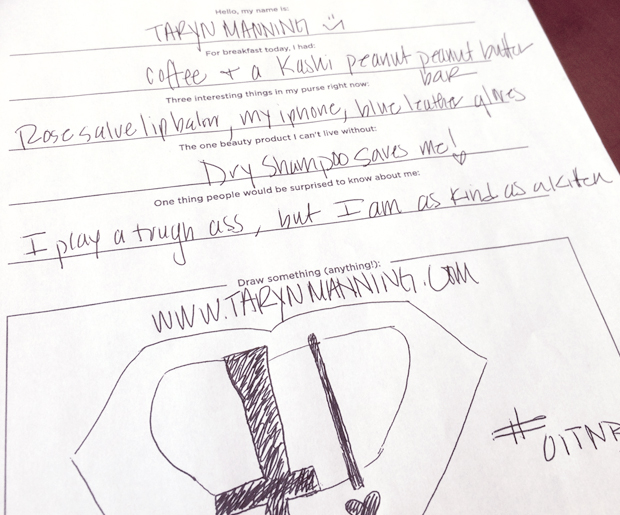 Hello, my name is:
TARYN MANNING
For breakfast today, I had:
coffee + a Kashi peanut peanut butter
bar
Three interesting things in my purse right now:
Rose salve lip balm, my iphone, blue leather gloves
The one beauty product I can't live without:
Dry Shampoo saves me!
One thing people would be surprised to know about me:
I play a tough ass, but I am as kind as a kitten
Draw something (anything!):
WWW.TARYNMANNING.COM
# OITNB